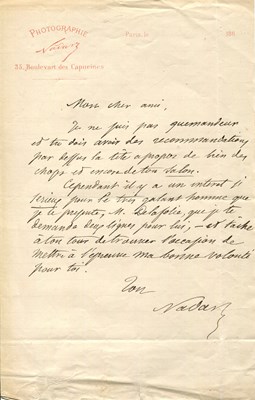 PHOTOGRAPHIE
Nadar
35, Boulevard des Capucines
Paris, le 188
Mon cher ami,
Je ne suis pas quemandeur
et tu dois avoir des recommandations
par dessus la tête à propos de bien des
choses et encore de ton Salon.
Cependant il y a un interet si
serieux pour le très galant homme que
je te presente, M. Delafolie, que je te
demande deux lignes pour lui, – et tâche
à ton tour de trouver l'occasion de
mettre à l'épreuve ma bonne volonté
pour toi.
Ton
Nadar